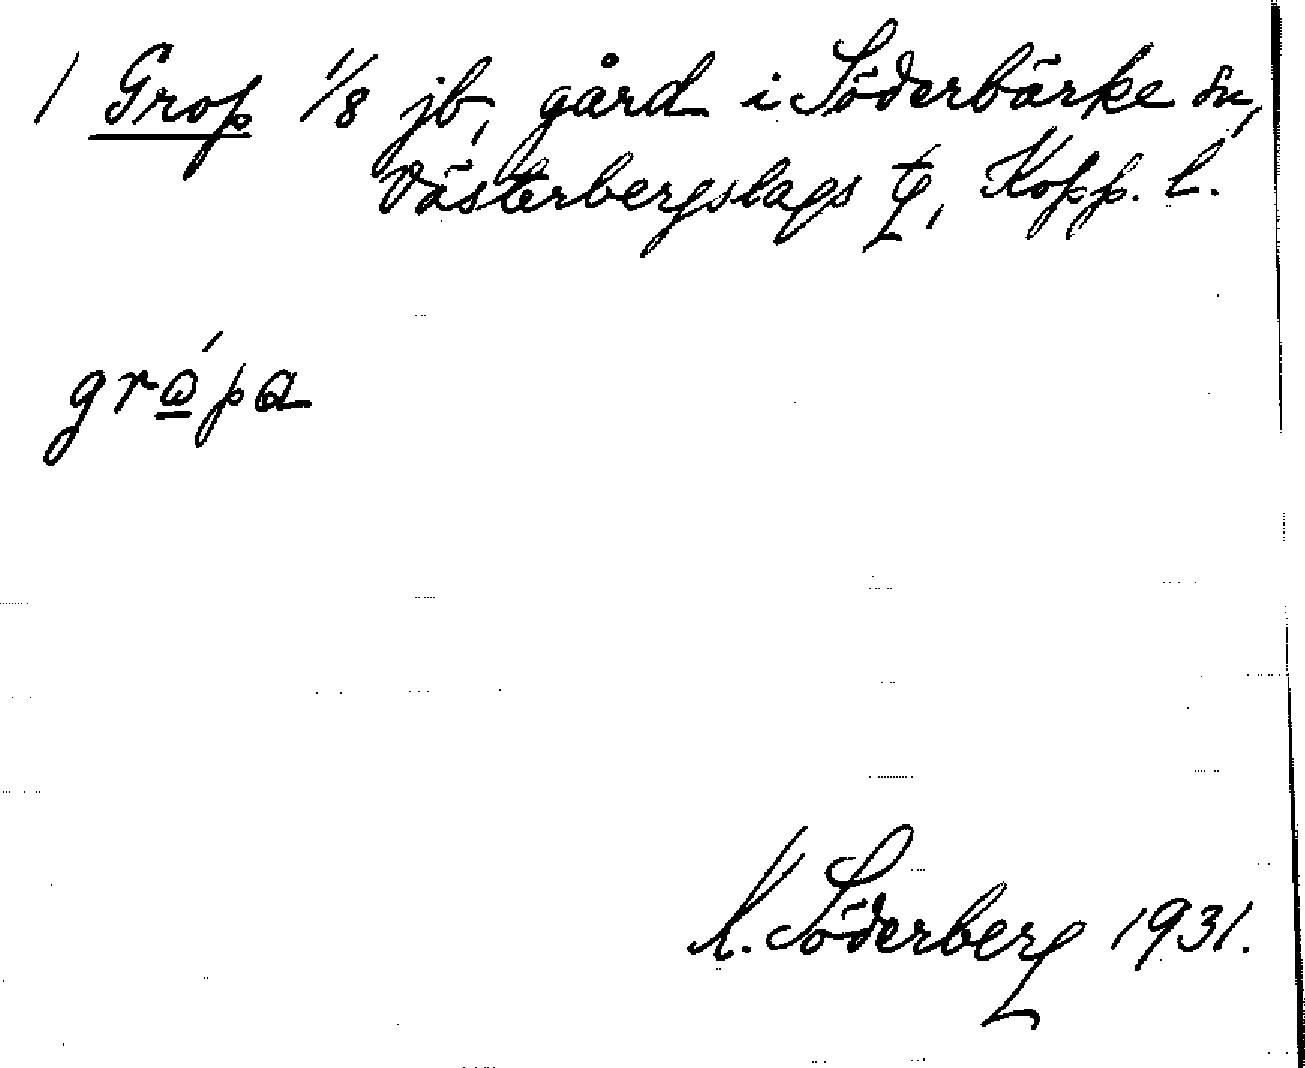 1 Grop 1/8 jb, gård i Söderbärke sn,
Västerbergslags tg, Kopp. l.
grǫ́pa
Söderberg 1931.